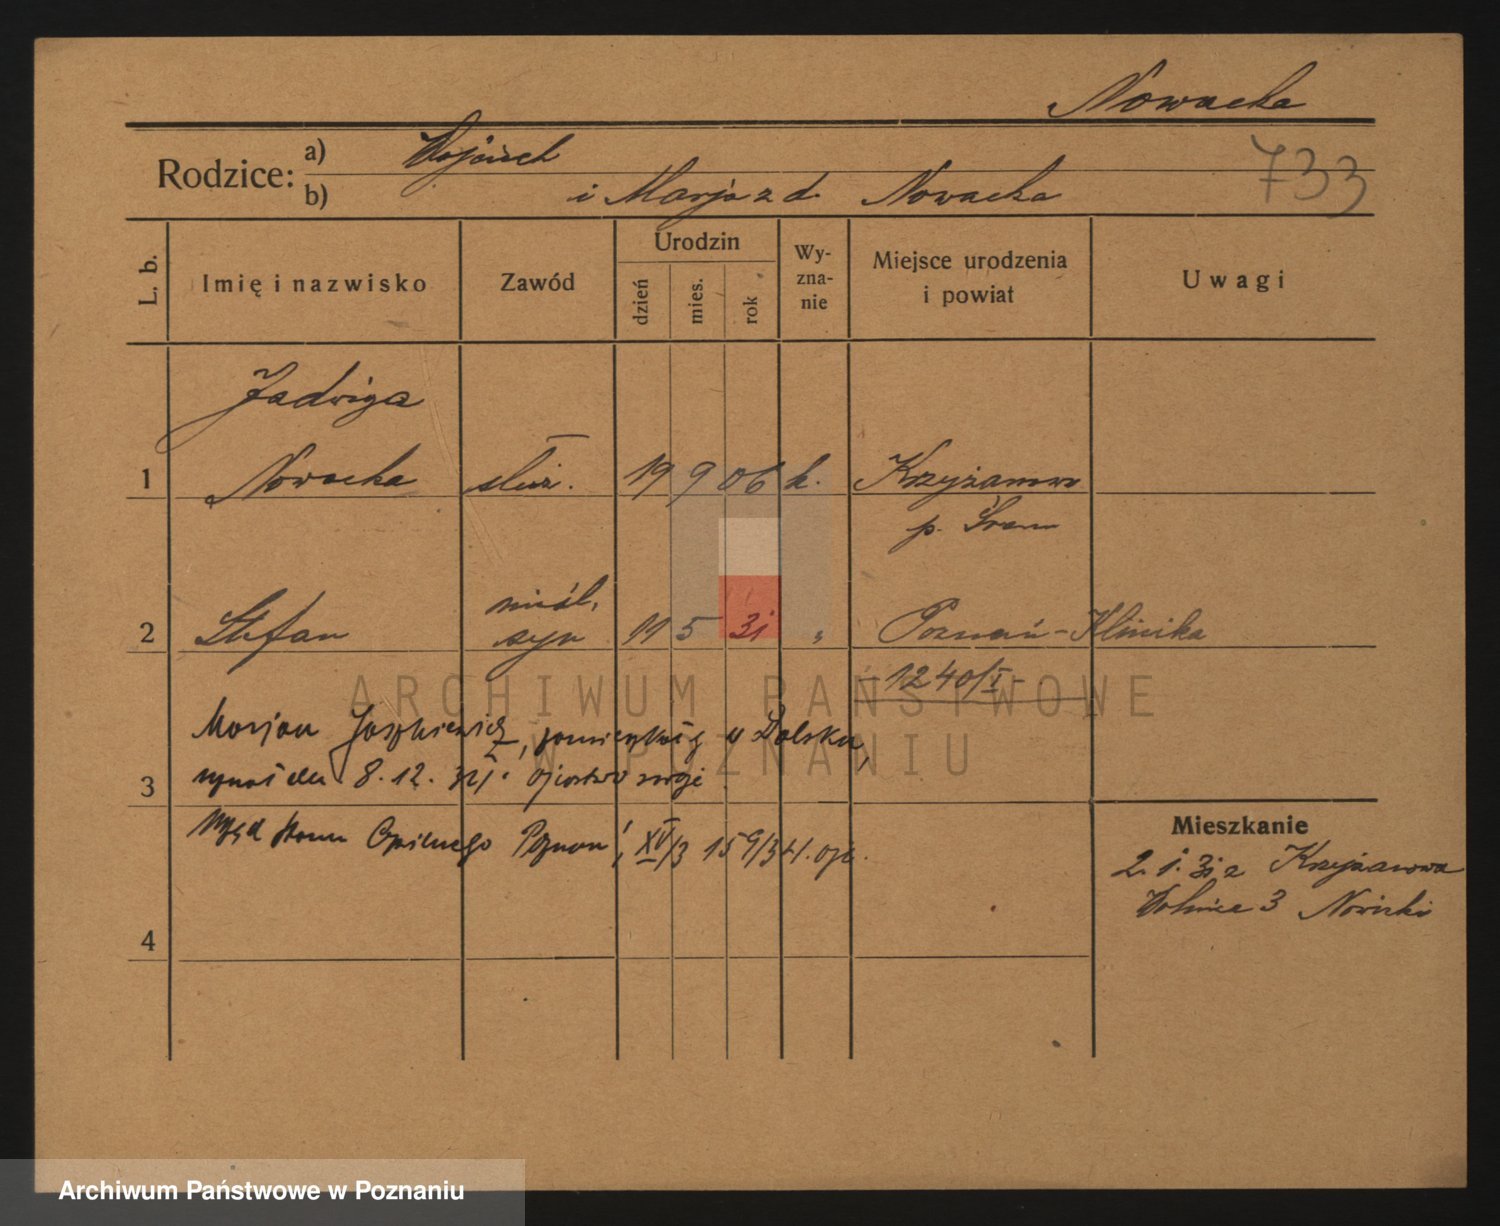 Nowacka
Rodzice: a) Wojciech
b) i Marja z d. Nowacka
733
L. b.
Imię i nazwisko
Zawód
Urodzin
dzień
mies.
rok
Wy-
zna-
nie
Miejsce urodzenia
i powiat
Uwagi
Jadwiga
1 Nowacka służ. 19 9 06 k. Krzyżanowo
p. Śrem
nieśl.
2 Stefan syn 11 5 31 " Poznań-Klinika
-1240/I-
Marjan zamieszkały w Dolsku,
3 uznał dn. 8.12. ojcostwo swoje
Urząd Stanu Cywilnego Poznań, XV/3 159/34.
Mieszkanie
2. 1. 31 z Krzyżanowa
3 Nowicki
4
ARCHIWUM PAŃSTWOWE
W POZNANIU
Archiwum Państwowe w Poznaniu